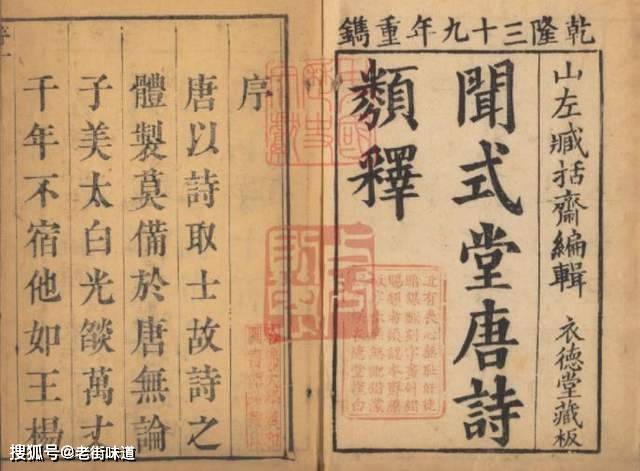 乾隆三十九年重鐫
山左臧括齋編輯 衣德堂藏板
聞式堂唐詩
類釋
序
唐以詩取士故詩之
體製莫備於唐無論
子美太白光燄萬丈
千年不宿他如王楊
搜狐号@老街味道